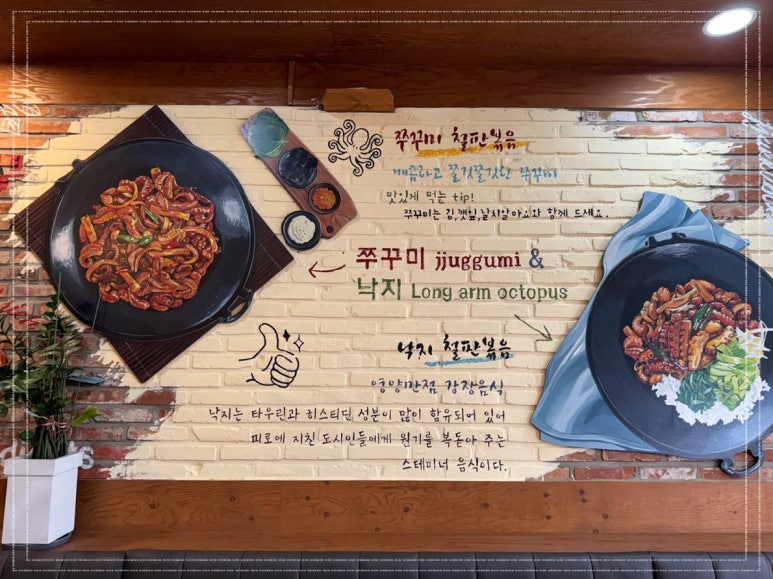 쭈꾸미 철판볶음
매콤하고 쫄깃쫄깃한 쭈꾸미
맛있게 먹는 tip!
쭈꾸미는 김,깻잎,날치알 마요와 함께 드세요.
쭈꾸미 jjuggumi &
낙지 Long arm octopus
낙지 철판볶음
영양만점 강장음식
낙지는 타우린과 히스티딘 성분이 많이 함유되어 있어
피로에 지친 도시인들에게 원기를 복돋아 주는
스테미너 음식이다.